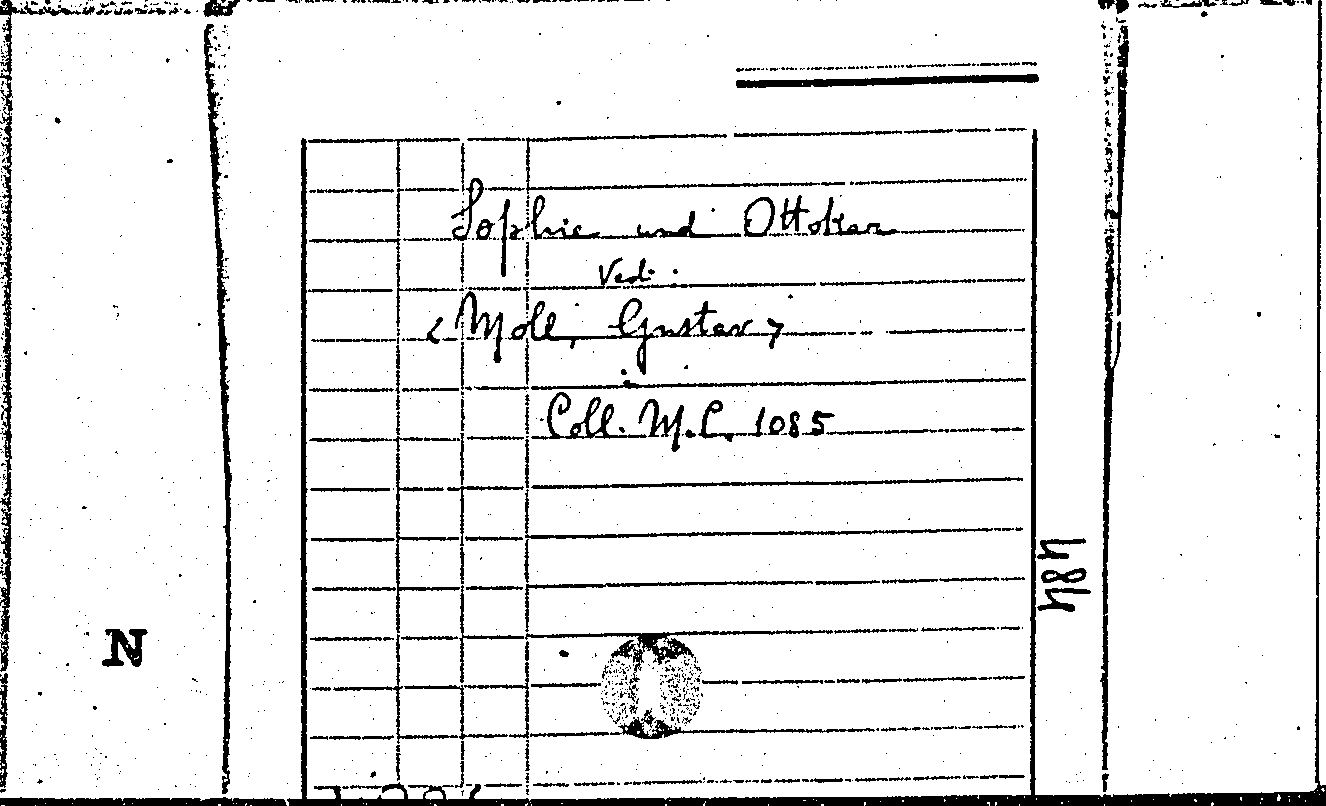 Sophie und Ottokar
Vedi:
<Moll, Gustav>
Coll. M.C. 1085
484
N